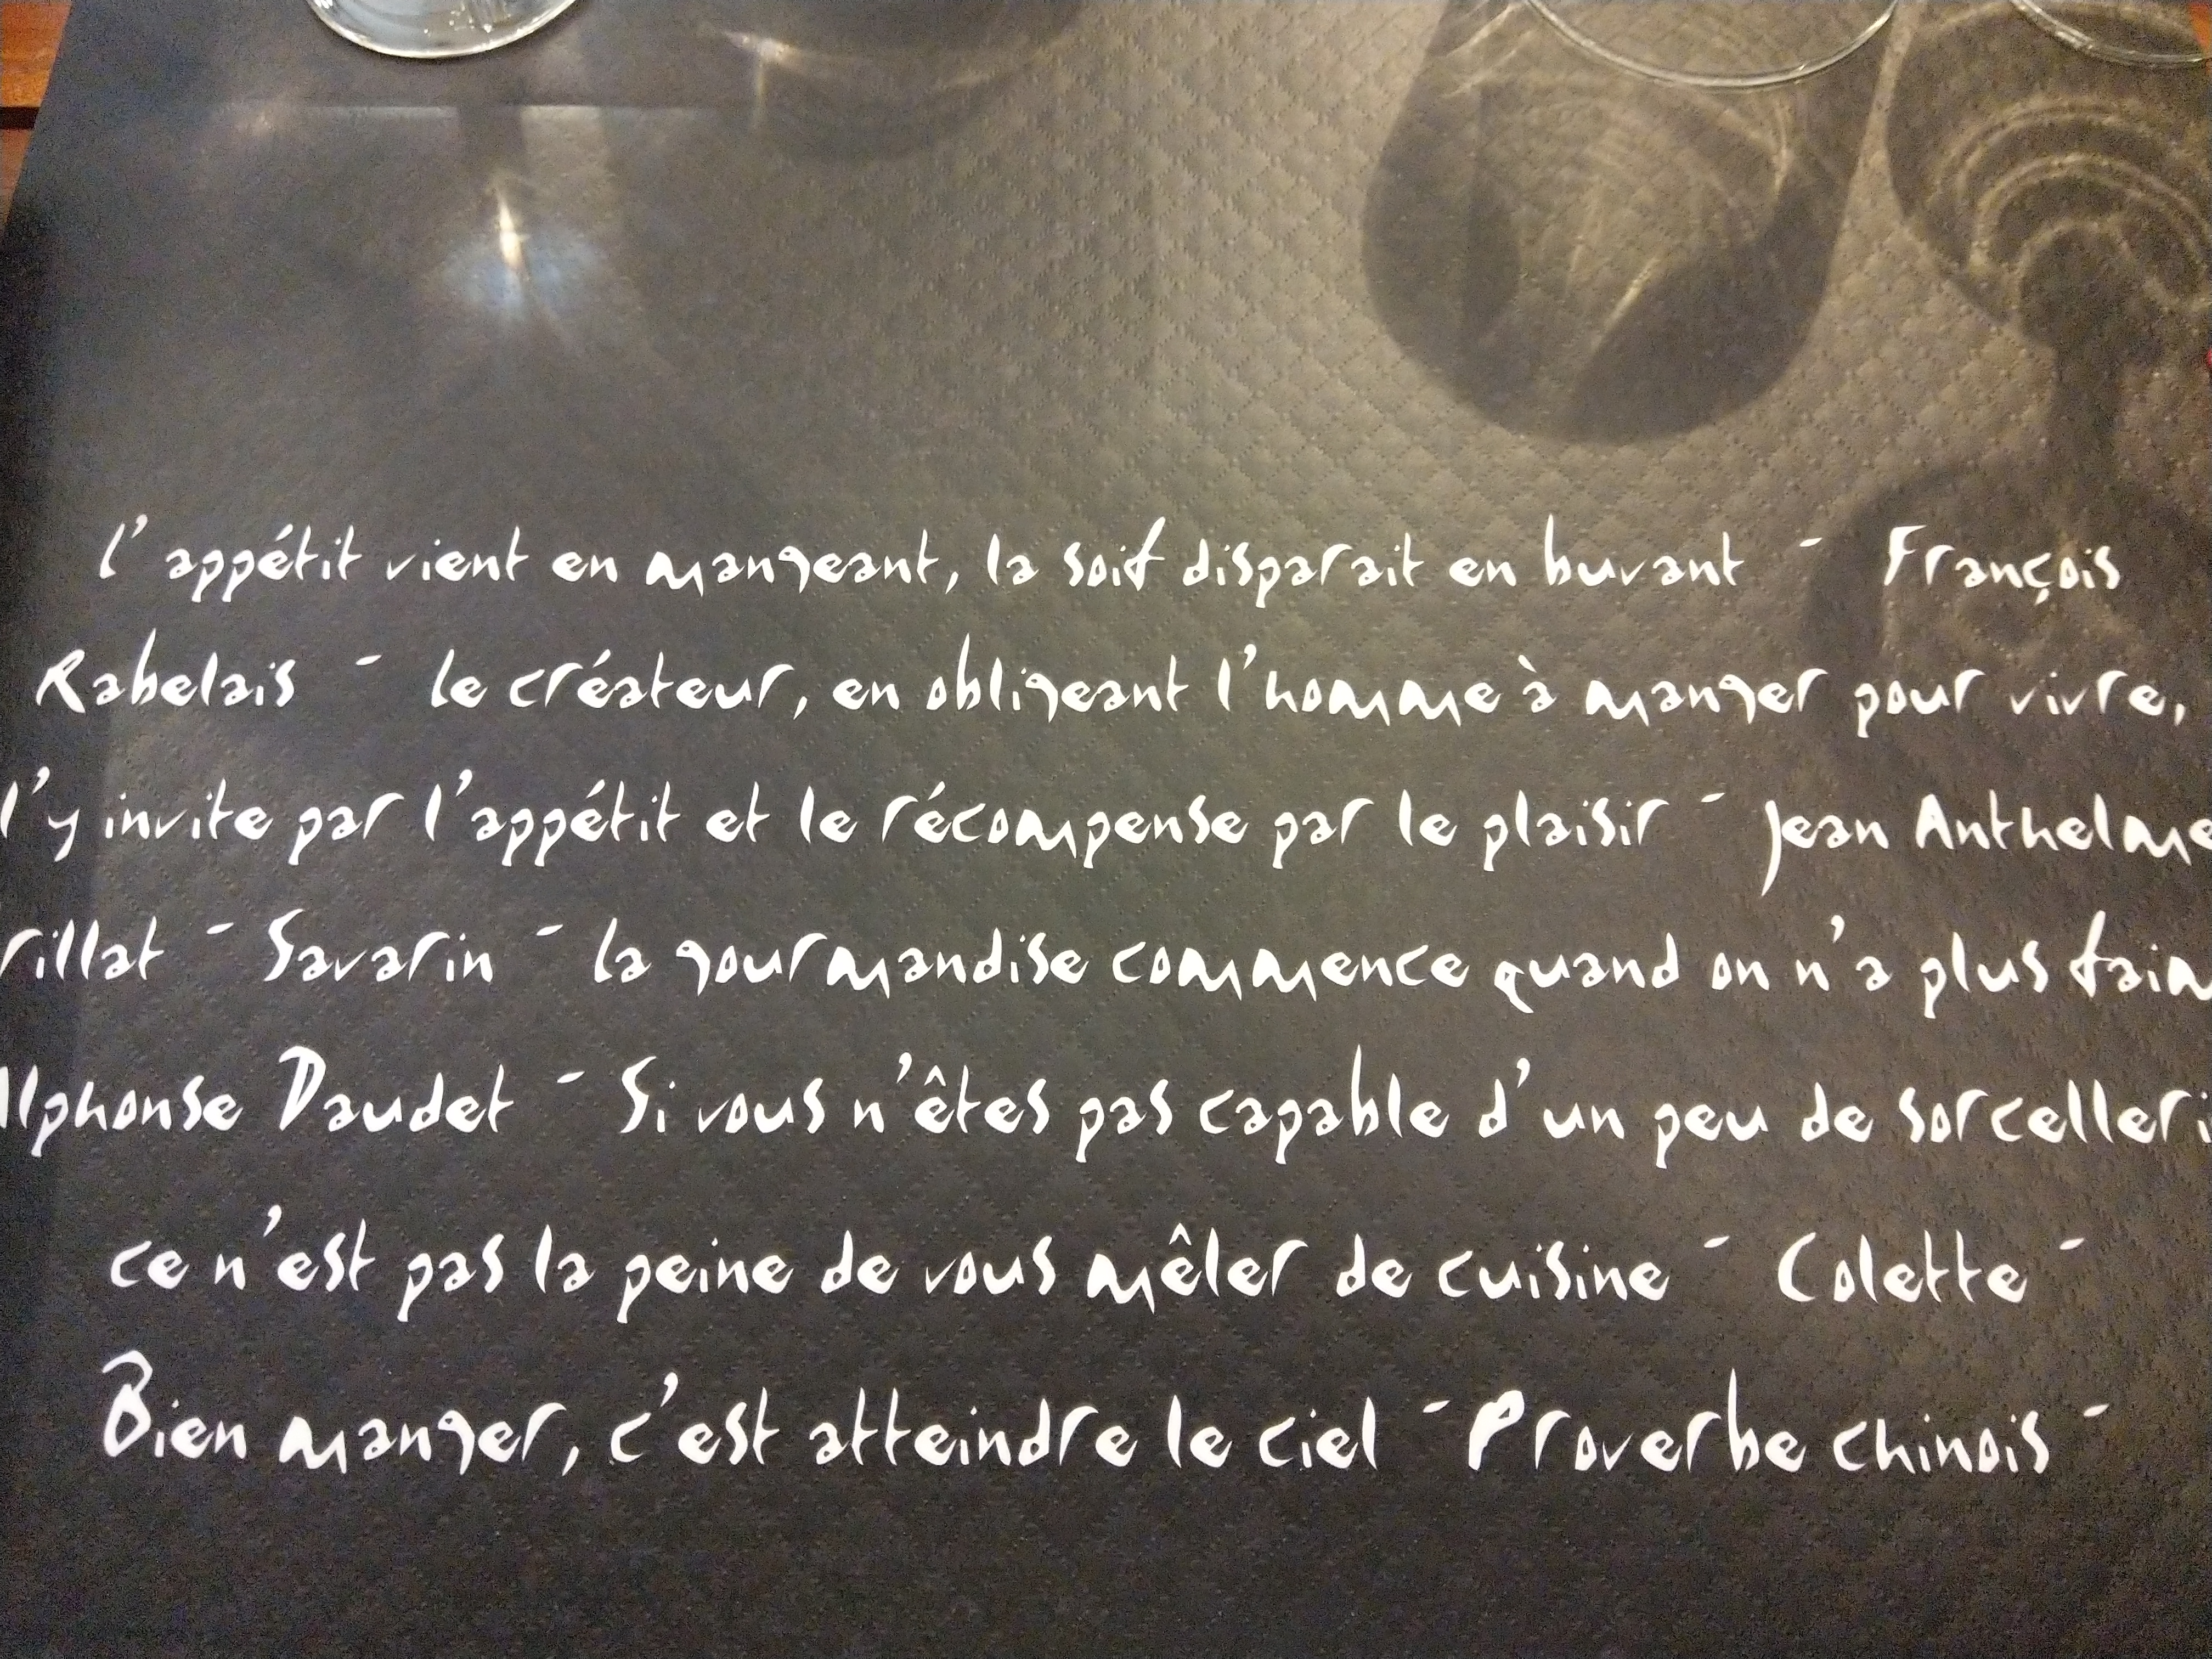 l' appétit vient en mangeant, la soif disparait en buvant - François
Rabelais - le créateur, en obligeant l'homme à manger pour vivre,
l'y invite par l'appétit et le récompense par le plaisir - Jean Anthelme
rillat - Savarin - la gourmandise commence quand on n'a plus faim
Alphonse Daudet - Si vous n'êtes pas capable d'un peu de sorcelleri
ce n'est pas la peine de vous mêler de cuisine - Colette -
Bien manger, c'est atteindre le ciel - Proverbe chinois -